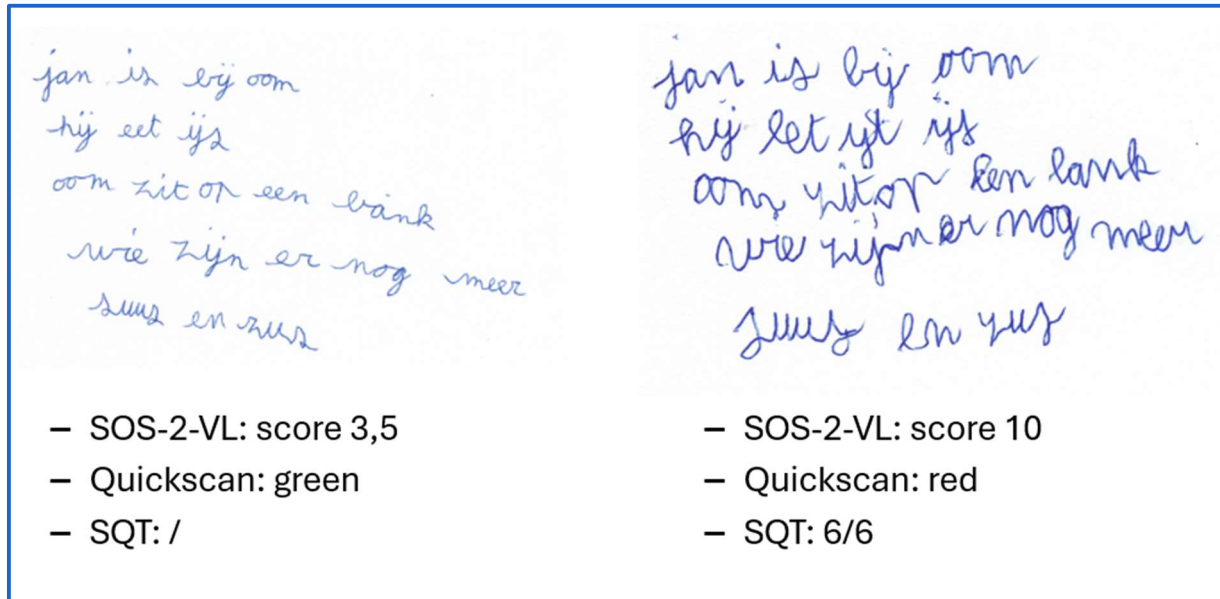 jan is bij oom
hij eet ijs
oom zit op een bank
wie zijn er nog meer
suus en zus
– SOS-2-VL: score 3,5
– Quickscan: green
– SQT: /
jan is bij oom
hij eet ijt ijs
oom zit op een bank
wie zijn er nog meer
suus en zus
– SOS-2-VL: score 10
– Quickscan: red
– SQT: 6/6